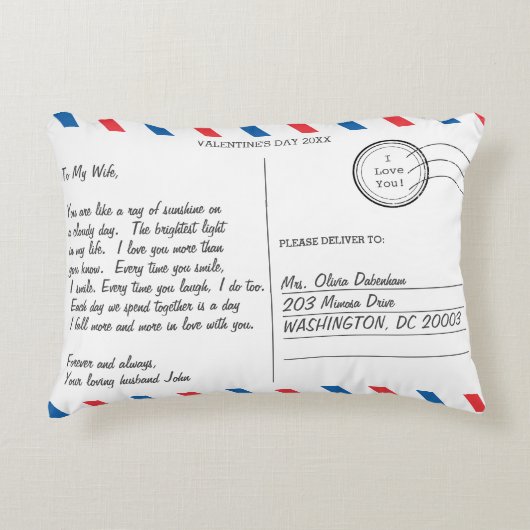 VALENTINE'S DAY 20XX
To My Wife,
You are like a ray of sunshine on
a cloudy day. The brightest light
in my life. I love you more than
you know. Every time you smile,
I smile. Every time you laugh, I do too.
Each day we spend together is a day
I fall more and more in love with you.
Forever and always,
Your loving husband John
I
Love
You!
PLEASE DELIVER TO:
Mrs. Olivia Dabenham
203 Mimosa Drive
WASHINGTON, DC 20003